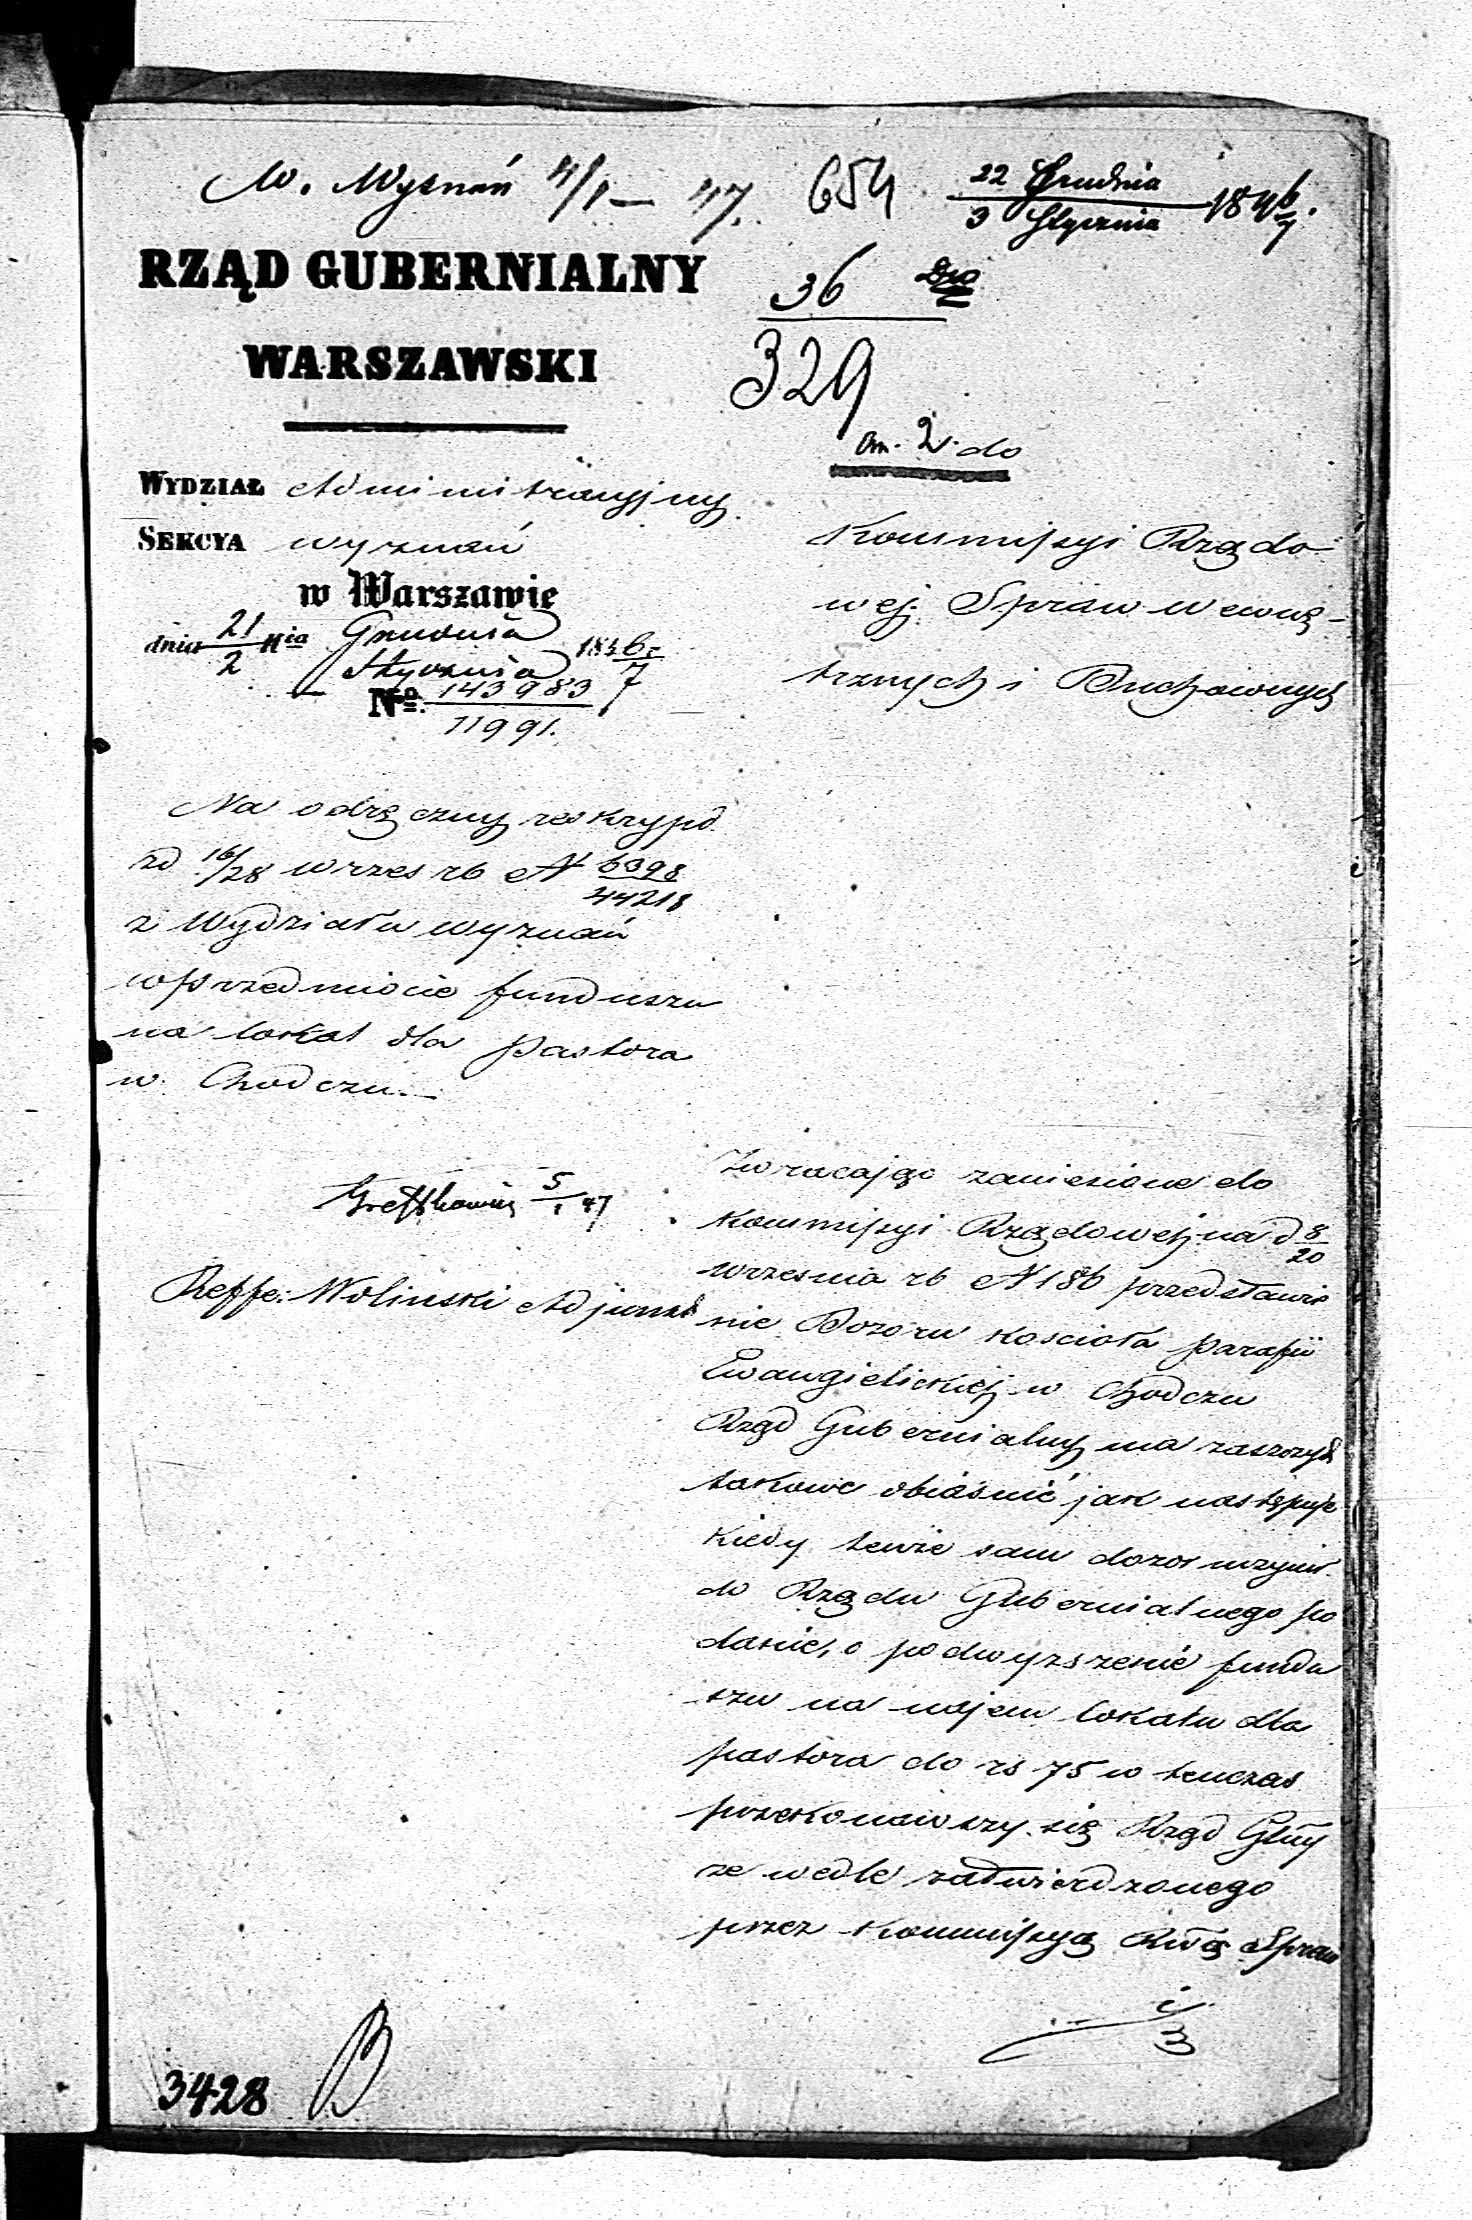 W. Wyznań 4/1 — 47.
654
22 Grudnia
3 Stycznia 1846/7.
RZĄD GUBERNIALNY
WARSZAWSKI
36
329
an. 2. do
WYDZIAŁ Administracyjny.
SEKCYA wyznań
w Warszawie
dnia 21 Grudnia
2 Stycznia 1846/7
No. 143983
11991.
Kommissyi Rządo-
wej Spraw Wewnę-
trznych i Duchownych
Na odręczny reskrypt
zd 16/28 wrzes rb N 6398
44218
z Wydziału wyznań
w przedmiocie funduszu
na lokal dla pastora
w Chodczu.
5/1 47
Reffe: Wolinski Adjunkt
Zwracając zaniesione do
Kommissyi Rządowej na d 8
20
września rb N 186 przedstawie
nie Dozoru kościoła parafii
Ewangielickiej w Chodczu
Rząd Gubernialny ma zaszczyt
takowe obiaśnić jak następuje
Kiedy tenże sam dozor uczynił
do Rządu Gubernialnego po
danie, o podwyższenie fundu
szu na najem lokalu dla
pastora do rs 75 w tenczas
przekonawszy się Rząd Głny
ze wedle zatwierdzonego
przez Kommissyą Rwą Spraw
3428
B